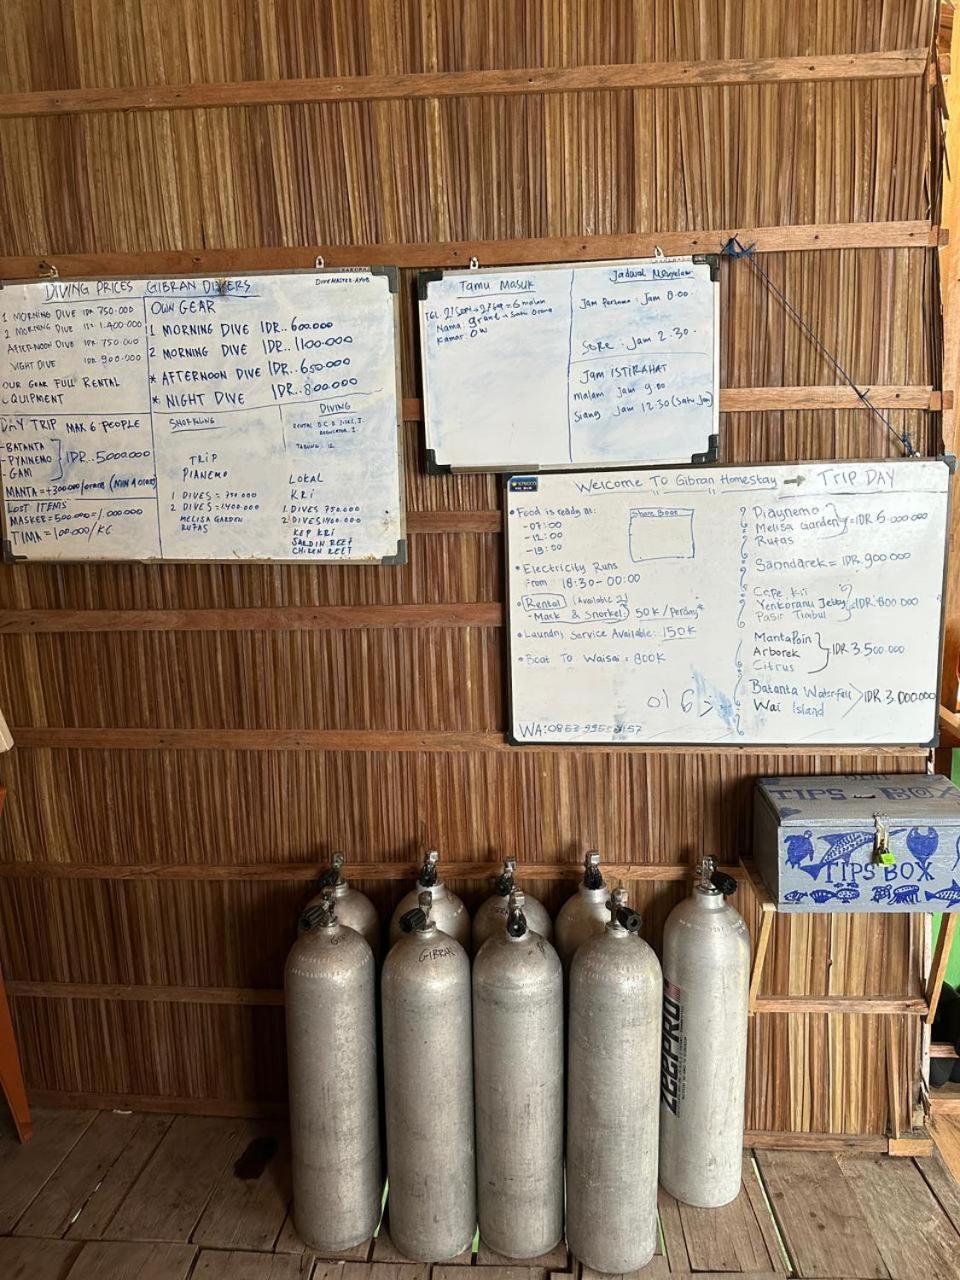 DIVING PRICES GIBRAN DIVERS
DIVEMASTER-AYUB
1 MORNING DIVE IDR 750.000
2 MORNING DIVE IDR 1.400.000
AFTERNOON DIVE IDR 750.000
NIGHT DIVE IDR 900.000
OUR GEAR FULL RENTAL
EQUIPMENT
OWN GEAR
1 MORNING DIVE IDR.. 600.000
2 MORNING DIVE IDR.. 1100.000
* AFTERNOON DIVE IDR.. 650.000
* NIGHT DIVE IDR.. 800.000
DAY TRIP MAK 6 PEOPLE
-BATANTA
-PYAINEMO
-GAM
IDR..5.000.000
MANTA =+300.000/orang (MIN 4 orang)
LOST ITEMS
MASKER=500.000=1.000.000
TIMA = 100.000/KG
TRIP
PIANEMO
1 DIVES = 750.000
2 DIVES =1400.000
MELISA GARDEN
RUFAS
DIVING
LOKAL
KRI
1. DIVES 750.000
2. DIVES 1400.000
KEP KRI
SARDIN REEF
CHIKEN REEF
Tamu Masuk
Nama: grant = satu orang
Kamar: OW
Jadwal Menyelam
Jam Pertama: Jam 8.00
SORE: Jam 2.30.
Jam ISTIRAHAT
malam Jam 9.00
Siang Jam 12.30 (Satu Jam)
Welcome To Gibran Homestay → TRIP DAY
• Food is ready at:
-07:00
-12:00
-19:00
Share Boat
• Electricity Runs
From 18:30-00:00
• Rental (Available 2)
-Mask & Snorkel: 50K/Perday*
• Laundry Service Available: 150K
• Boat To Waisai = 800K
WA:
Piaynemo
Melisa Garden
Rufas
=IDR 6.000.000
Sanndarek = IDR.900.000
Cape Kri
Yenkoranu Jetty
Pasir Timbul
=IDR 800.000
MantaPoin
Arborek
Citrus
IDR 3.500.000
Batanta Waterfall
Wai Island
IDR 3.000.000
TIPS BOX
TIPS BOX
GIBRAN
ZEEPRO